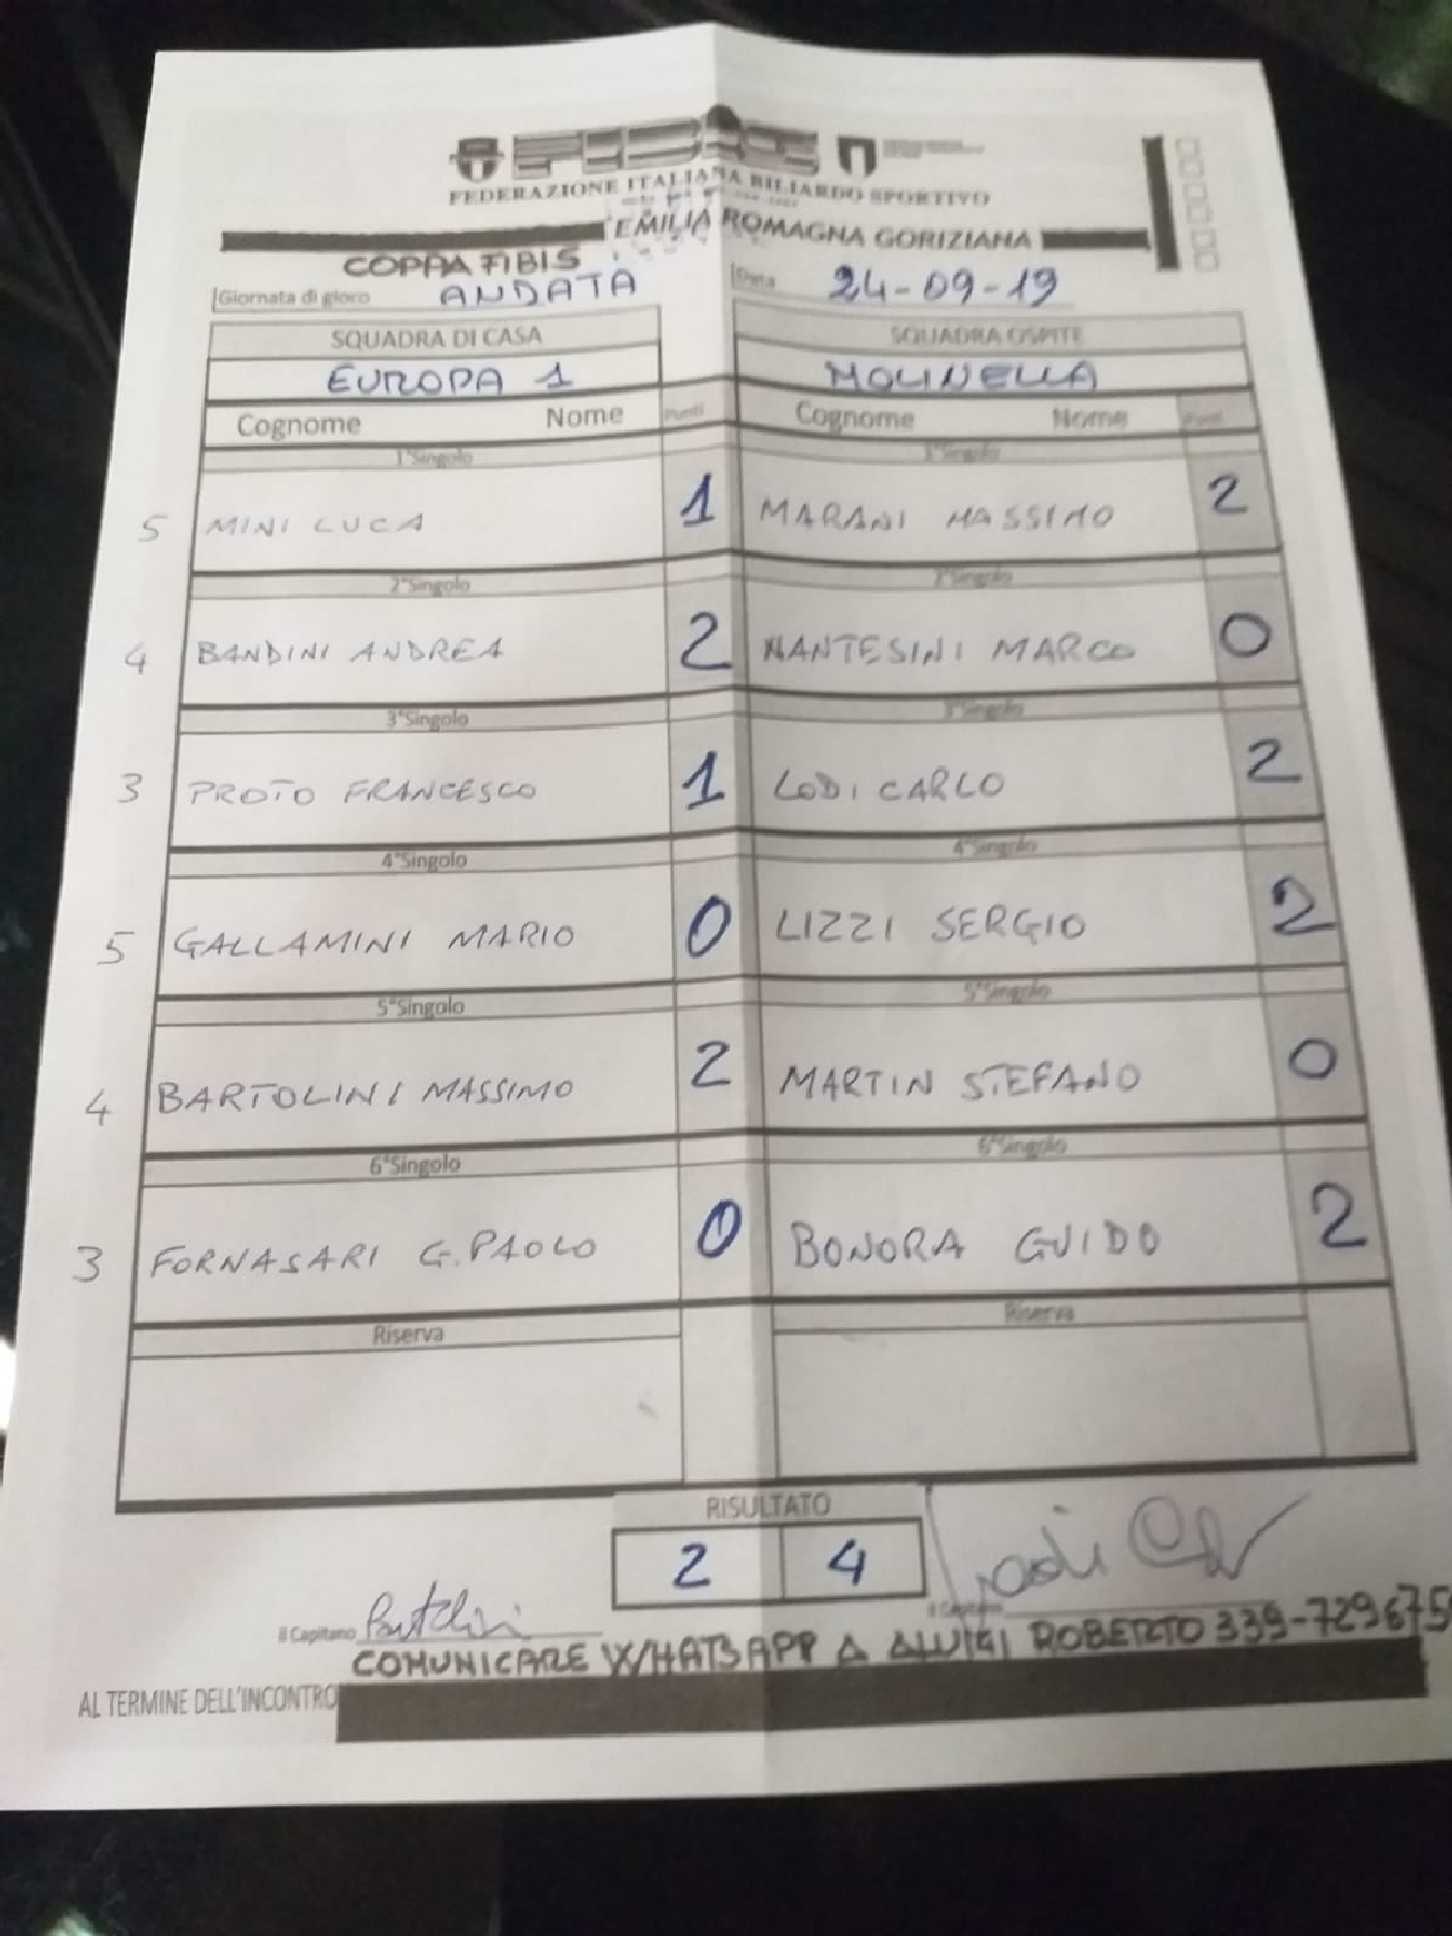 FIBIS
FEDERAZIONE ITALIANA BILIARDO SPORTIVO
EMILIA ROMAGNA GORIZIANA
COPPA FIBIS
Giornata di gioro ANDATA Data 24-09-19
SQUADRA DI CASA SQUADRA OSPITE
EUROPA 1 MOLINELLA
Cognome Nome Punti Cognome Nome Punti
1°Singolo 1°Singolo
5 MINI LUCA 1 MARANI MASSIMO 2
2°Singolo 2°Singolo
4 BANDINI ANDREA 2 MANTESINI MARCO 0
3°Singolo 3°Singolo
3 PROTO FRANCESCO 1 LODI CARLO 2
4°Singolo 4°Singolo
5 GALLAMINI MARIO 0 LIZZI SERGIO 2
5°Singolo 5°Singolo
4 BARTOLINI MASSIMO 2 MARTIN STEFANO 0
6°Singolo 6°Singolo
3 FORNASARI G. PAOLO 0 BONORA GUIDO 2
Riserva Riserva
RISULTATO
2 4
Il Capitano Bartolini Il Capitano
COMUNICARE WHATSAPP A ALVIGI ROBERTO 339-729675
AL TERMINE DELL'INCONTRO